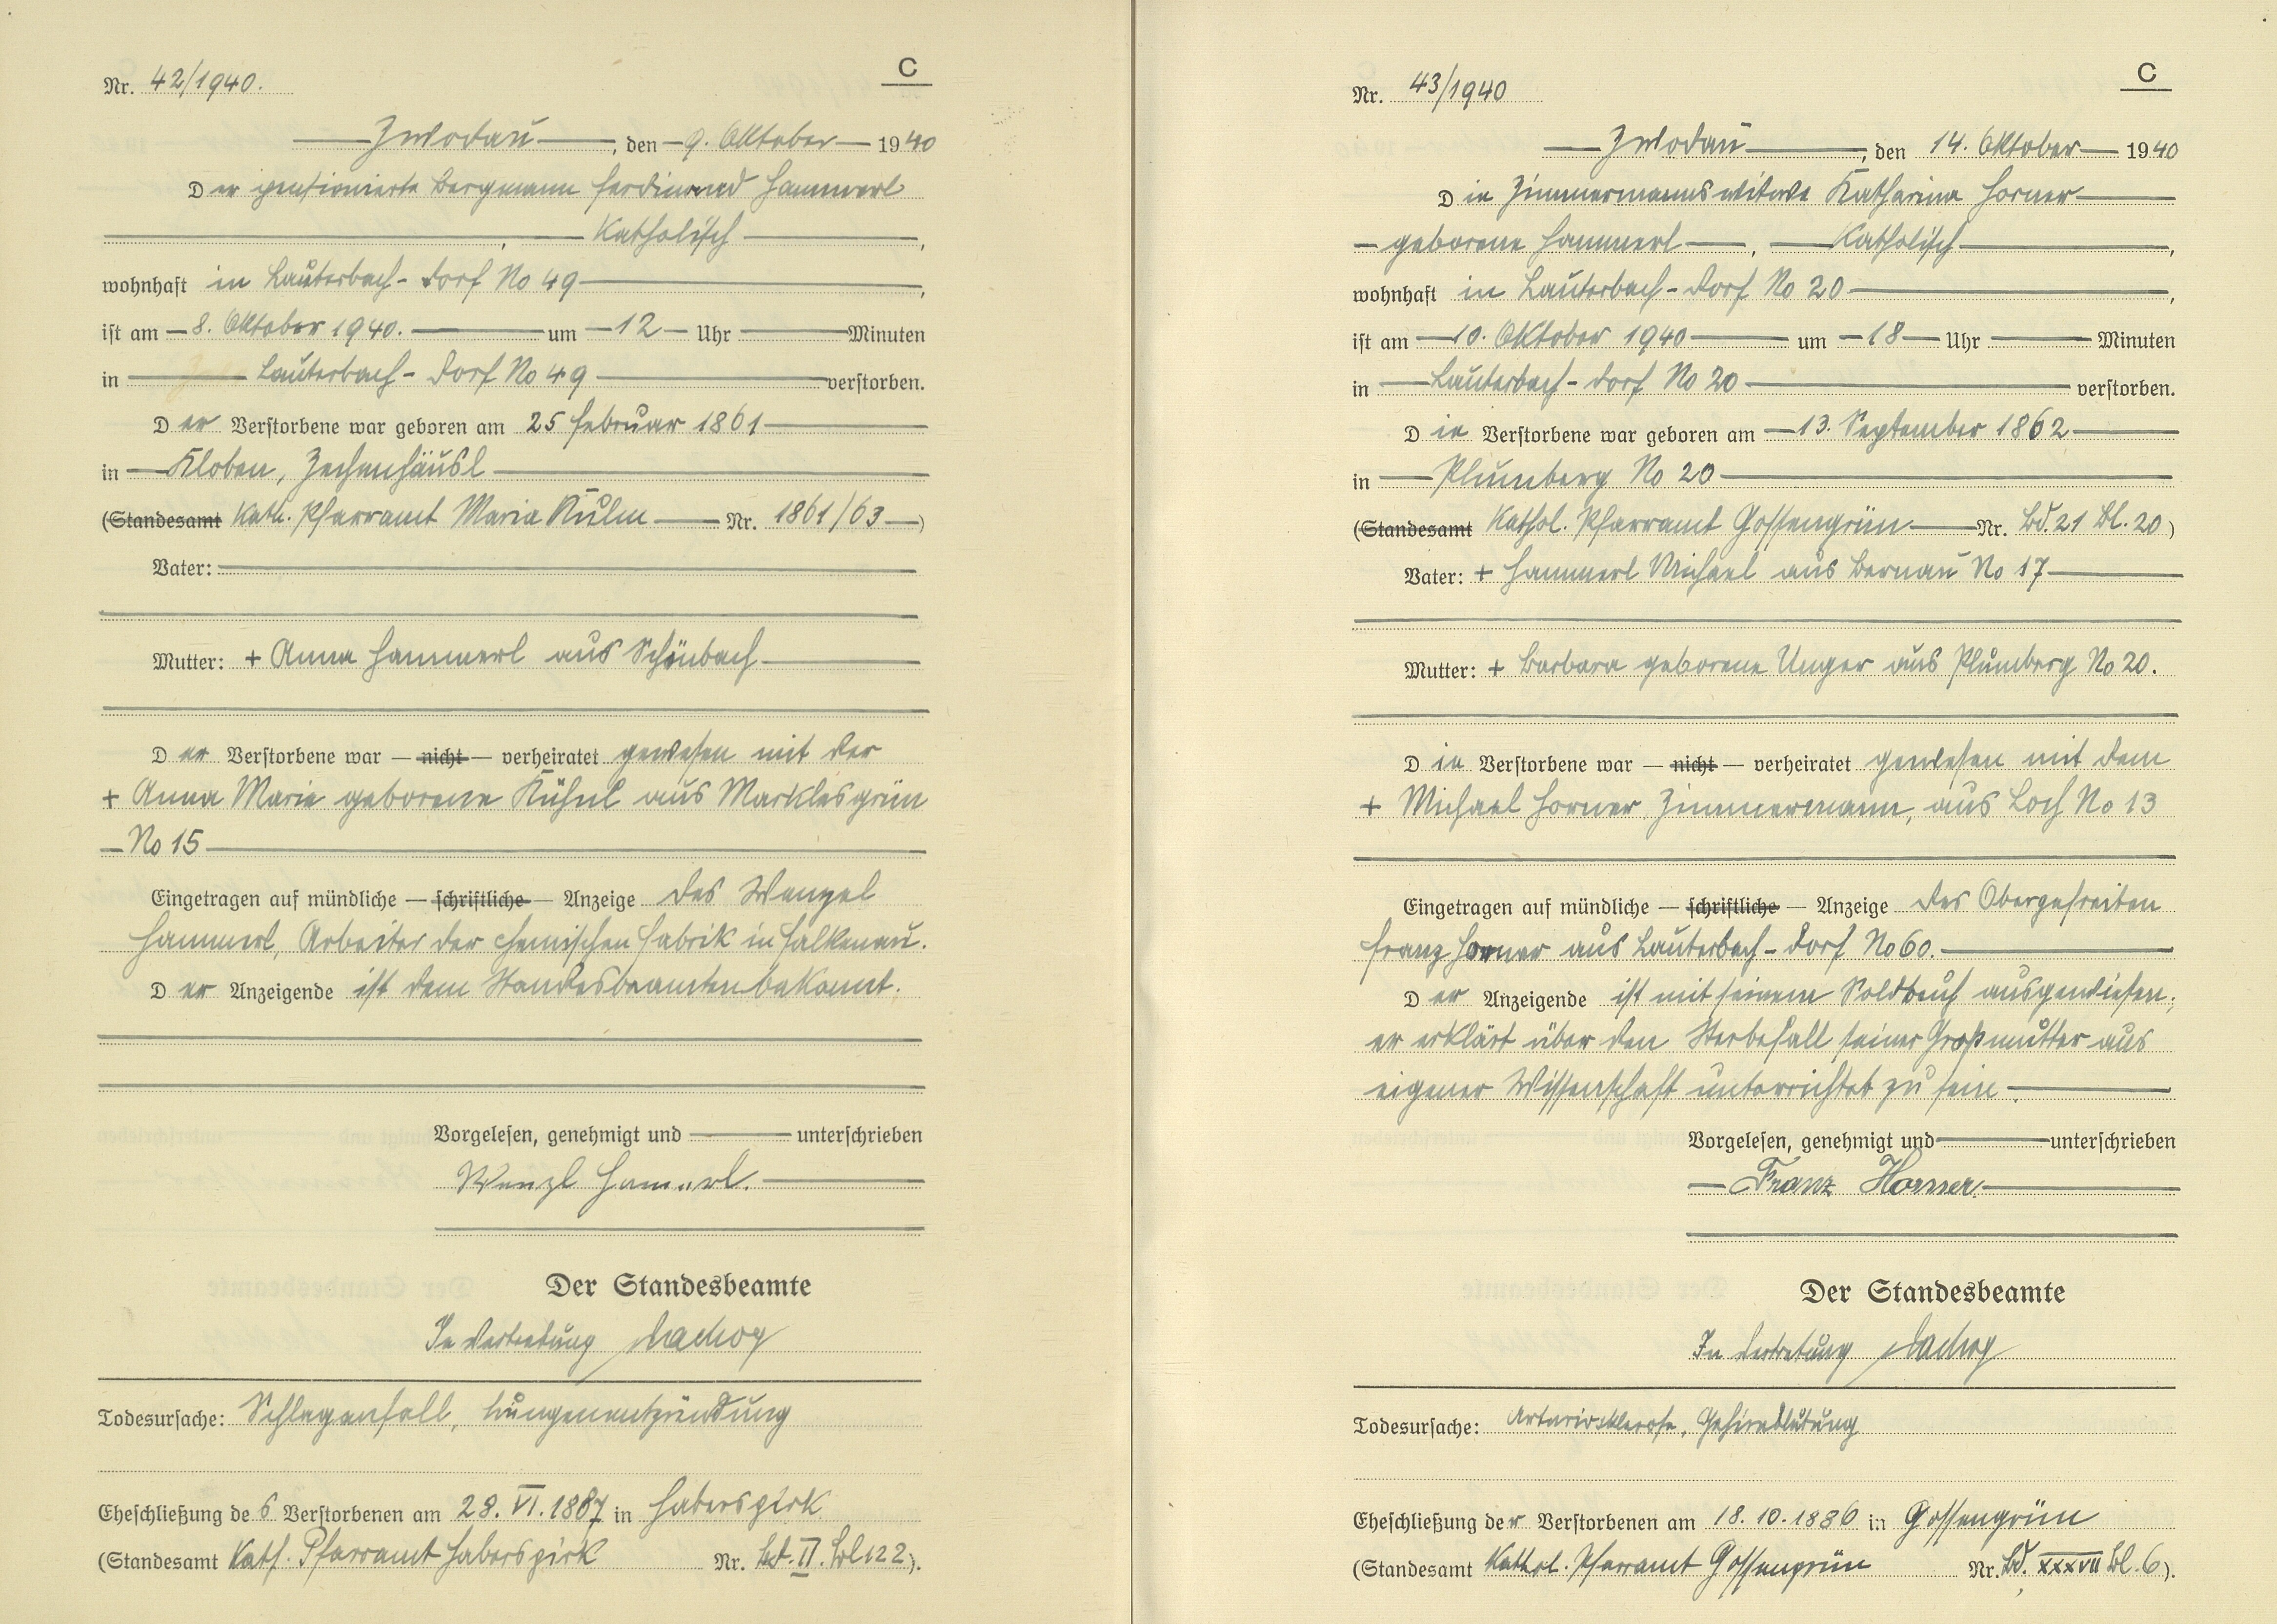 C
Nr. 42/1940.
Zwodau, den 9. Oktober 1940
Der pensionierte Bergmann Ferdinand Hammerl
, Katholisch,
wohnhaft in Lauterbach-Dorf No 49,
ist am 8. Oktober 1940. um 12 Uhr Minuten
in Lauterbach-Dorf No 49 verstorben.
Der Verstorbene war geboren am 25 Februar 1861
in Kloben, Zechenhäusl
(Standesamt Kath. Pfarramt Maria Kulm Nr. 1861/63)
Vater:
Mutter: + Anna Hammerl aus Schönbach
Der Verstorbene war — nicht — verheiratet gewesen mit der
+ Anna Marie geborene Kühnl aus Marklesgrün
No 15
Eingetragen auf mündliche — schriftliche — Anzeige des Wenzel
Hammerl, Arbeiter der chemischen Fabrik in Falkenau.
Der Anzeigende ist dem Standesbeamten bekannt.
Vorgelesen, genehmigt und unterschrieben
Wenzl Hammerl.
Der Standesbeamte
In Vertretung
Todesursache: Schlaganfall, Lungenentzündung
Eheschließung des Verstorbenen am 28. VI. 1887 in Haberspirk
(Standesamt Kath. Pfarramt Haberspirk Nr. Bd. II. Bl 122).
C
Nr. 43/1940
Zwodau, den 14. Oktober 1940
Die Zimmermannswitwe Katharina Horner
geborene Hammerl, Katholisch,
wohnhaft in Lauterbach-Dorf No 20,
ist am 10. Oktober 1940 um 18 Uhr Minuten
in Lauterbach-Dorf No 20 verstorben.
Die Verstorbene war geboren am 13. September 1862
in Plumberg No 20
(Standesamt Kathol. Pfarramt Gossengrün Nr. Bd. 21 Bl. 20)
Vater: + Hammerl Michael aus Bernau No 17
Mutter: + Barbara geborene Unger aus Plumberg No 20.
Die Verstorbene war — nicht — verheiratet gewesen mit dem
+ Michael Horner, Zimmermann, aus Loch No 13
Eingetragen auf mündliche — schriftliche — Anzeige des Obergefreiten
Franz Horner aus Lauterbach-Dorf No 60.
Der Anzeigende ist mit seinem Soldbuch ausgewiesen;
er erklärt über den Sterbefall seiner Großmutter aus
eigener Wissenschaft unterrichtet zu sein.
Vorgelesen, genehmigt und unterschrieben
Franz Horner.
Der Standesbeamte
In Vertretung
Todesursache: Arteriosklerose, Gehirnblutung
Eheschließung der Verstorbenen am 18. 10. 1886 in Gossengrün
(Standesamt Kathol. Pfarramt Gossengrün Nr. Bd. XXXVII Bl. 6).